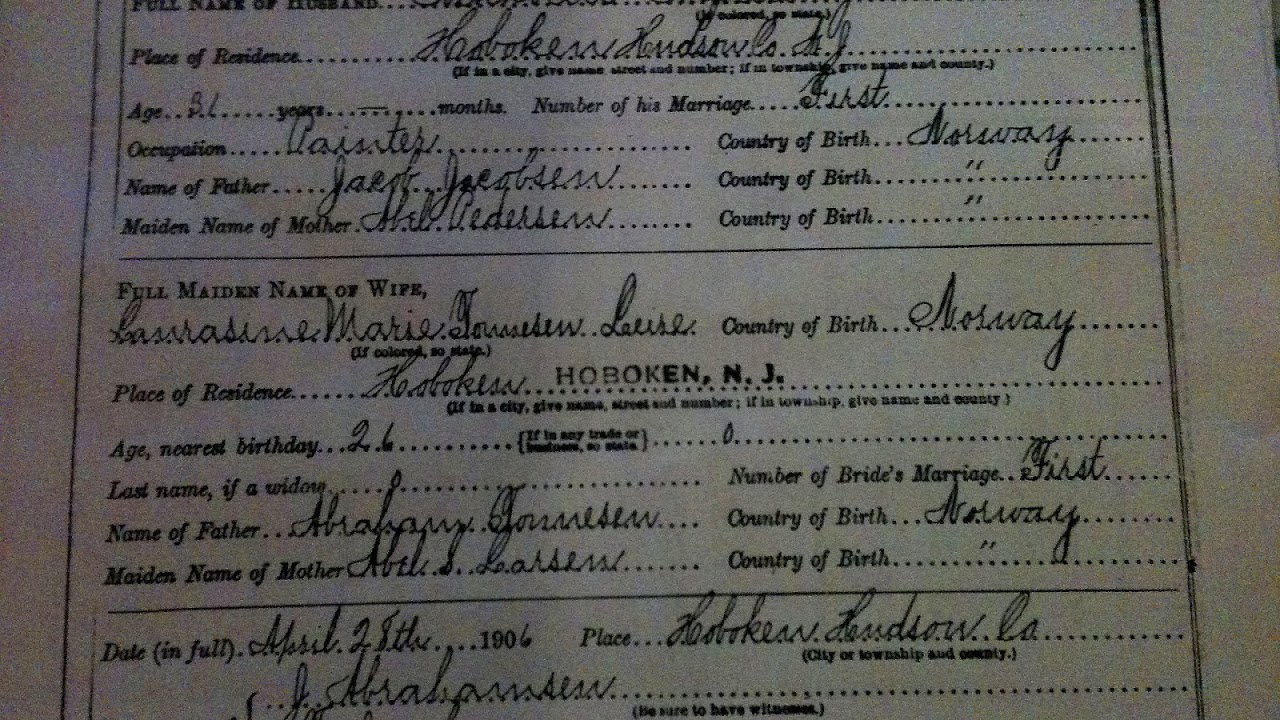 FULL NAME OF HUSBAND...
(If colored, so state.)
Place of Residence.......... Hoboken Hudson Co. N.J
(If in a city, give name, street and number; if in township, give name and county.)
Age..31......years.. — ......months. Number of his Marriage..... First
Occupation...... Painter Country of Birth... Norway
Name of Father..... Jacob Jacobsen Country of Birth.......... "
Maiden Name of Mother. Abel Pedersen Country of Birth.......... "
FULL MAIDEN NAME OF WIFE,
Laurasine Marie Tonnesen Country of Birth... Norway
(If colored, so state.)
Place of Residence...... Hoboken HOBOKEN, N. J.
(If in a city, give name, street and number; if in township, give name and county)
Age, nearest birthday...26.......... {If in any trade or business, so state} ......0
Last name, if a widow.....0 Number of Bride's Marriage.. First
Name of Father.. Abraham Tonnesen.... Country of Birth... Norway
Maiden Name of Mother Abel S. Larsen Country of Birth.......... "
Date (in full). April 28th. ....1906 Place... Hoboken Hudson Co
(City or township and county.)
J. Abrahamsen
(Be sure to have witnesses.)